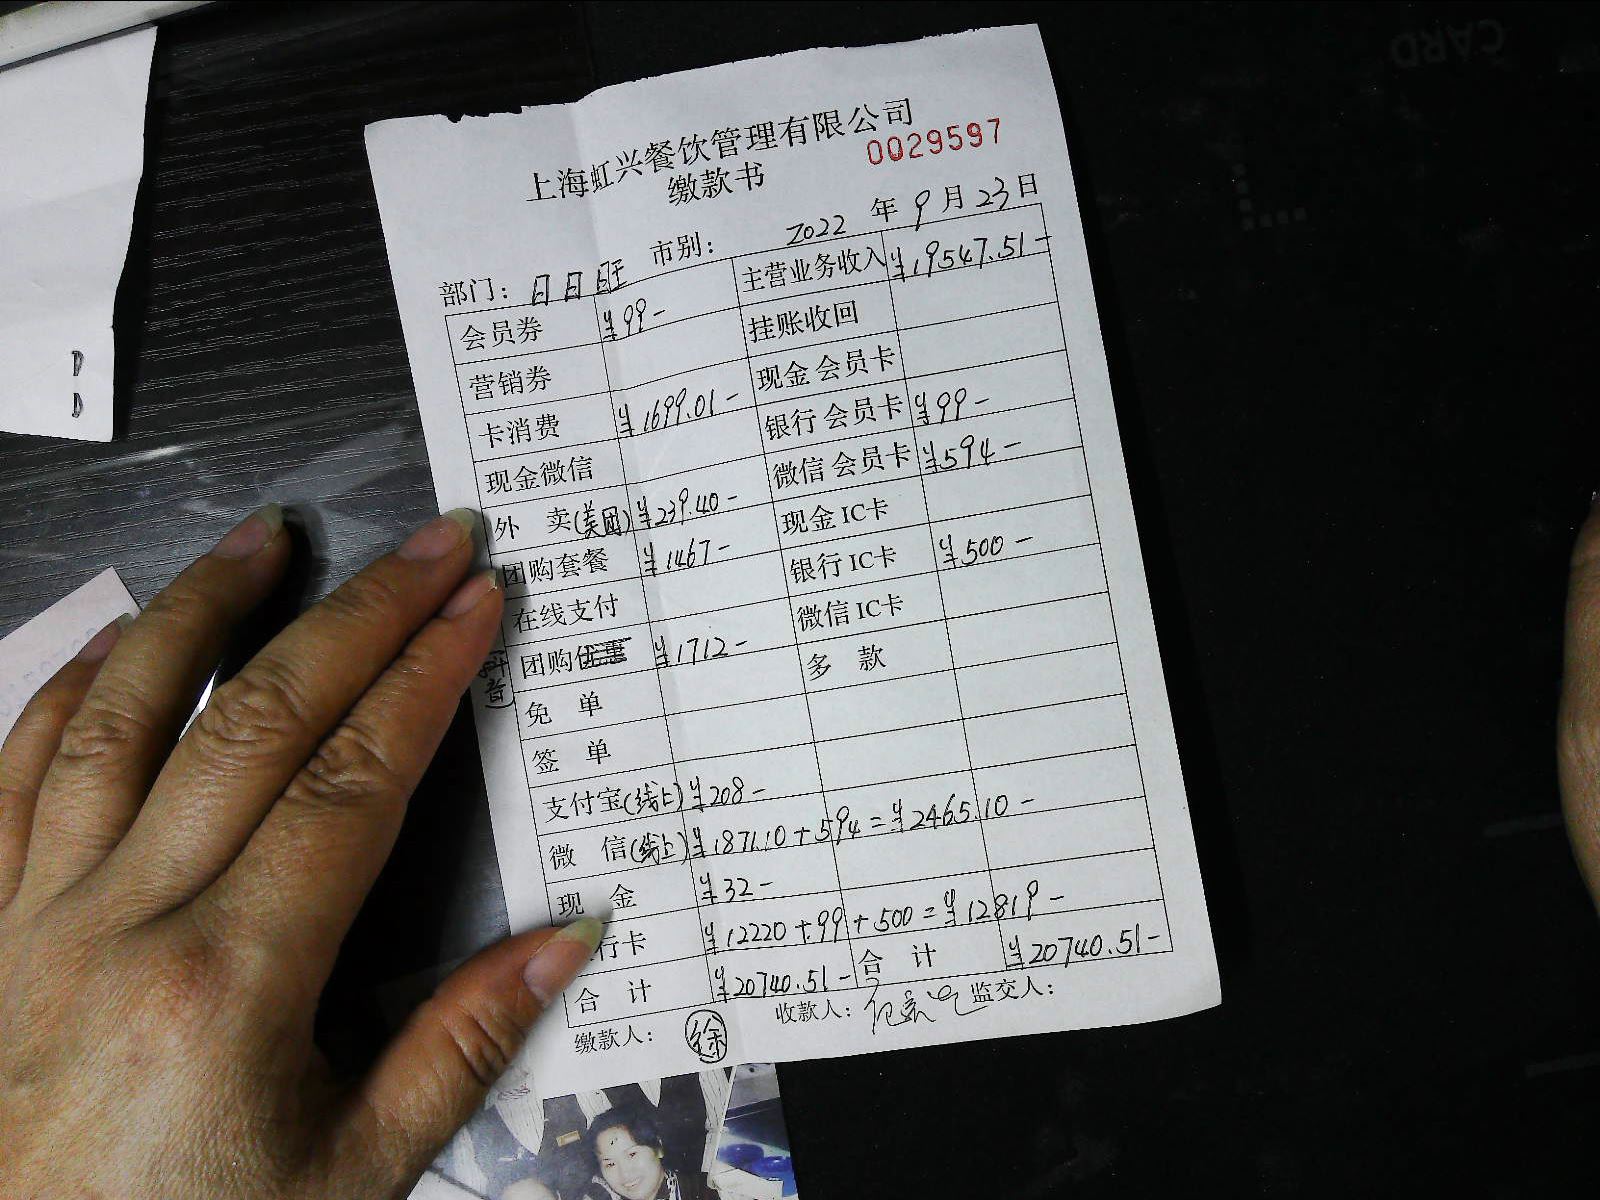 CARD
上海虹兴餐饮管理有限公司
0029597
缴款书
2022 年 9 月 23 日
部门： 日日旺 市别：
会员券 ¥99- 主营业务收入 ¥19547.51-
营销券 挂账收回
卡消费 ¥1699.01- 现金会员卡
现金微信 银行会员卡 ¥99-
外 卖(美团) ¥239.40- 微信会员卡 ¥594-
团购套餐 ¥1467- 现金IC卡
在线支付 银行IC卡 ¥500-
团购 (抖音) ¥1712- 微信IC卡
免 单 多 款
签 单
支付宝(线上) ¥208-
微 信(线上) ¥1871.10+594=¥2465.10-
现 金 ¥32-
行卡 ¥12220+99+500=¥12819-
合 计 ¥20740.51- 合 计 ¥20740.51-
缴款人： 徐 收款人： 监交人：